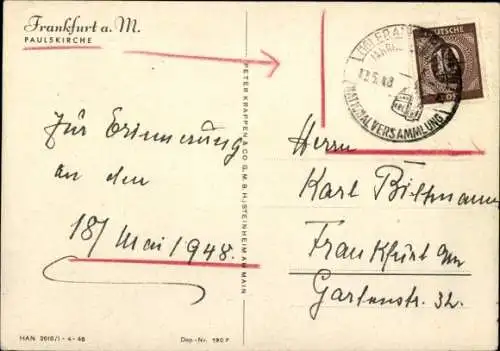 Frankfurt a. M.
PAULSKIRCHE
Zur Erinnerung
an den
18/ Mai 1948.
HAN 2616/1 - 4 - 48
Dep.-Nr. 190 F
PETER KRAPPEN & CO G.M.B.H., STEINHEIM AM MAIN
NATIONALVERSAMMLUNG
DEUTSCHE
Herrn
Karl Bittmann
Frankfurt a/m
Gartenstr. 32.